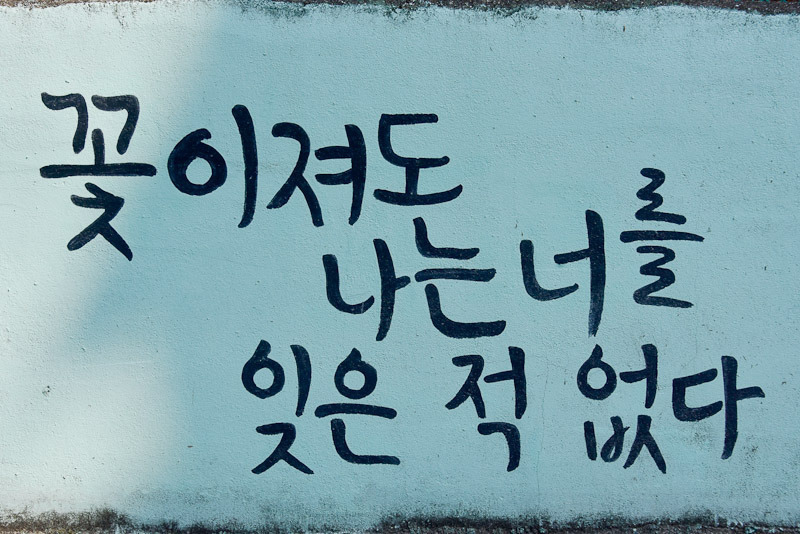 꽃이져도
나는 너를
잊은 적 없다